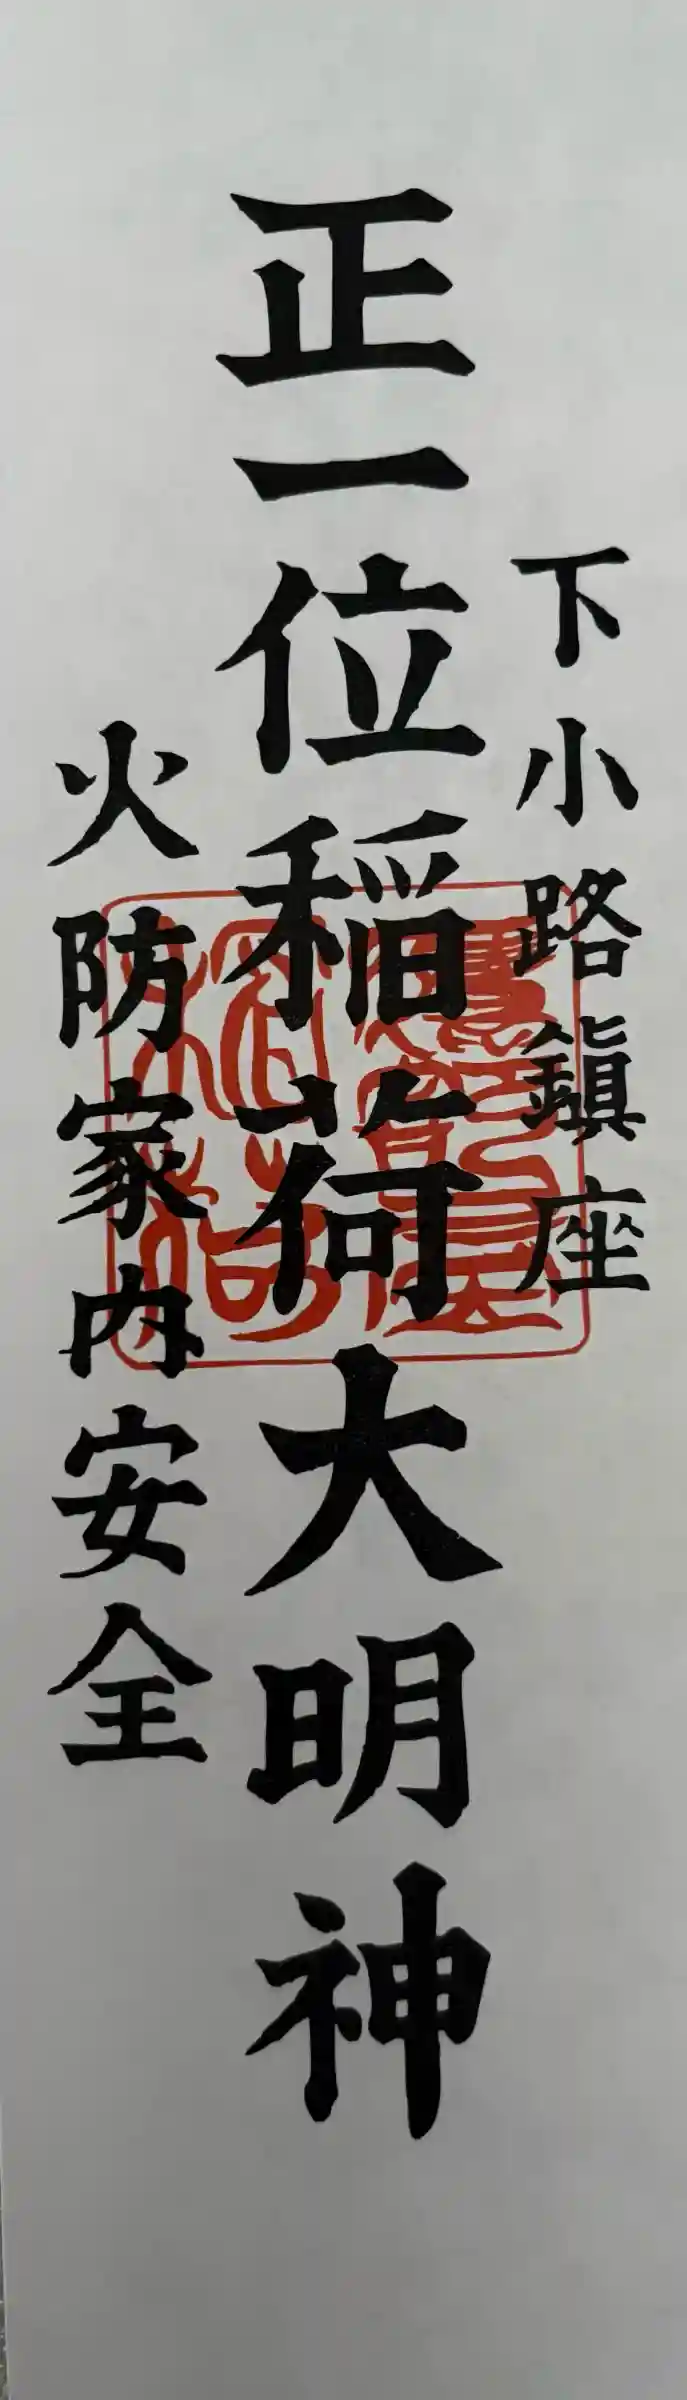 下小路鎭座
正一位稲荷大明神
火防家内安全